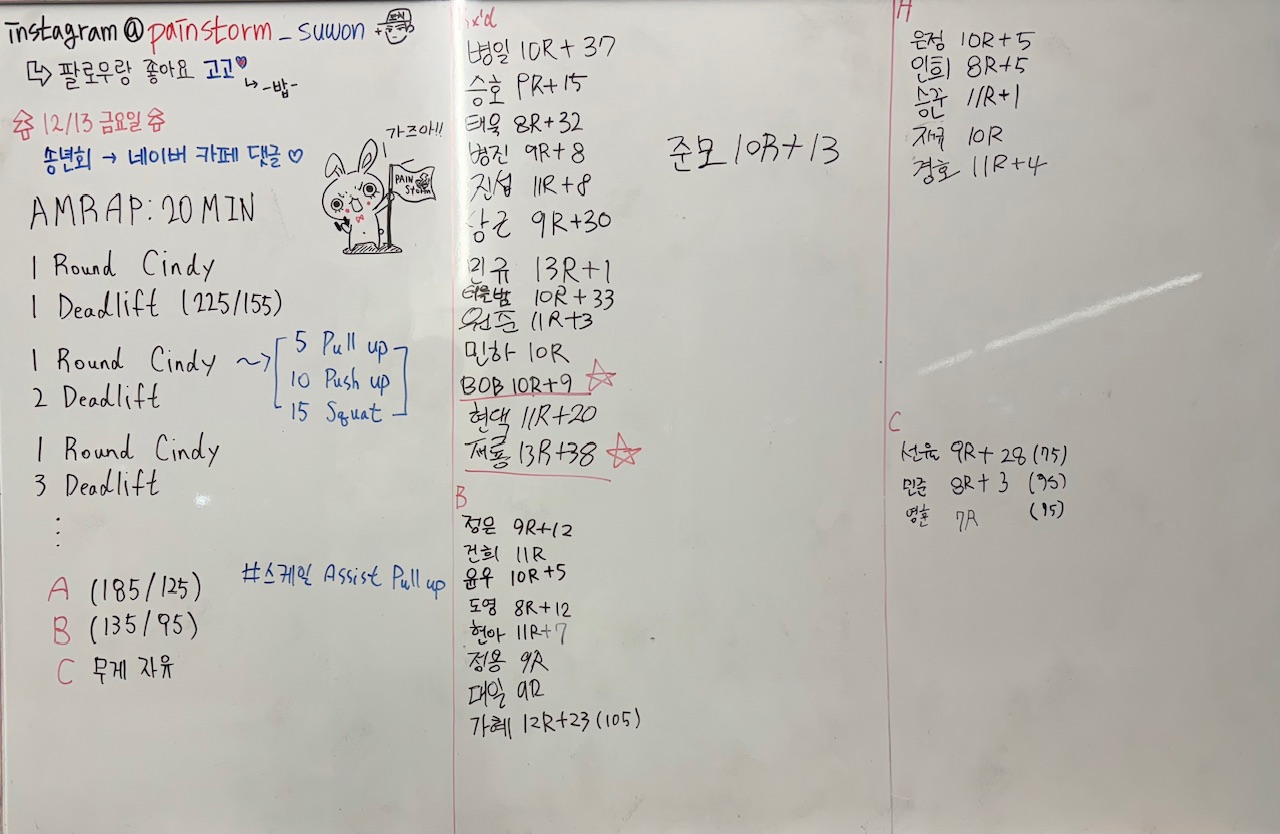 instagram@painstorm_suwon +
팔로우랑 좋아요 고고♥
→ -밥-
12/13 금요일
송년회 → 네이버 카페 댓글♡
가즈아!!
PAIN STORM
AMRAP: 20 MIN
1 Round Cindy
1 Deadlift (225/155)
1 Round Cindy ~>
5 Pull up
10 Push up
15 Squat
2 Deadlift
1 Round Cindy
3 Deadlift
⋮
A (185/125)
B (135/95)
C 무게 자유
#스케일 Assist Pull up
Rx'd
병일 10R+37
승호 9R+15
태욱 8R+32
병진 9R+8
진섭 11R+8
상근 9R+30
민규 13R+1
10R+33
원준 11R+3
민하 10R
BOB 10R+9 ☆
현택 11R+20
재룡 13R+38 ☆
준모 10R+13
B
정은 9R+12
건희 11R
윤우 10R+5
도영 8R+12
현아 11R+7
정용 9R
대일 9R
가혜 12R+23 (105)
A
은정 10R+5
인희 8R+5
승준 11R+1
10R
경호 11R+4
C
선율 9R+28 (75)
민준 8R+3 (95)
영훈 7R (95)